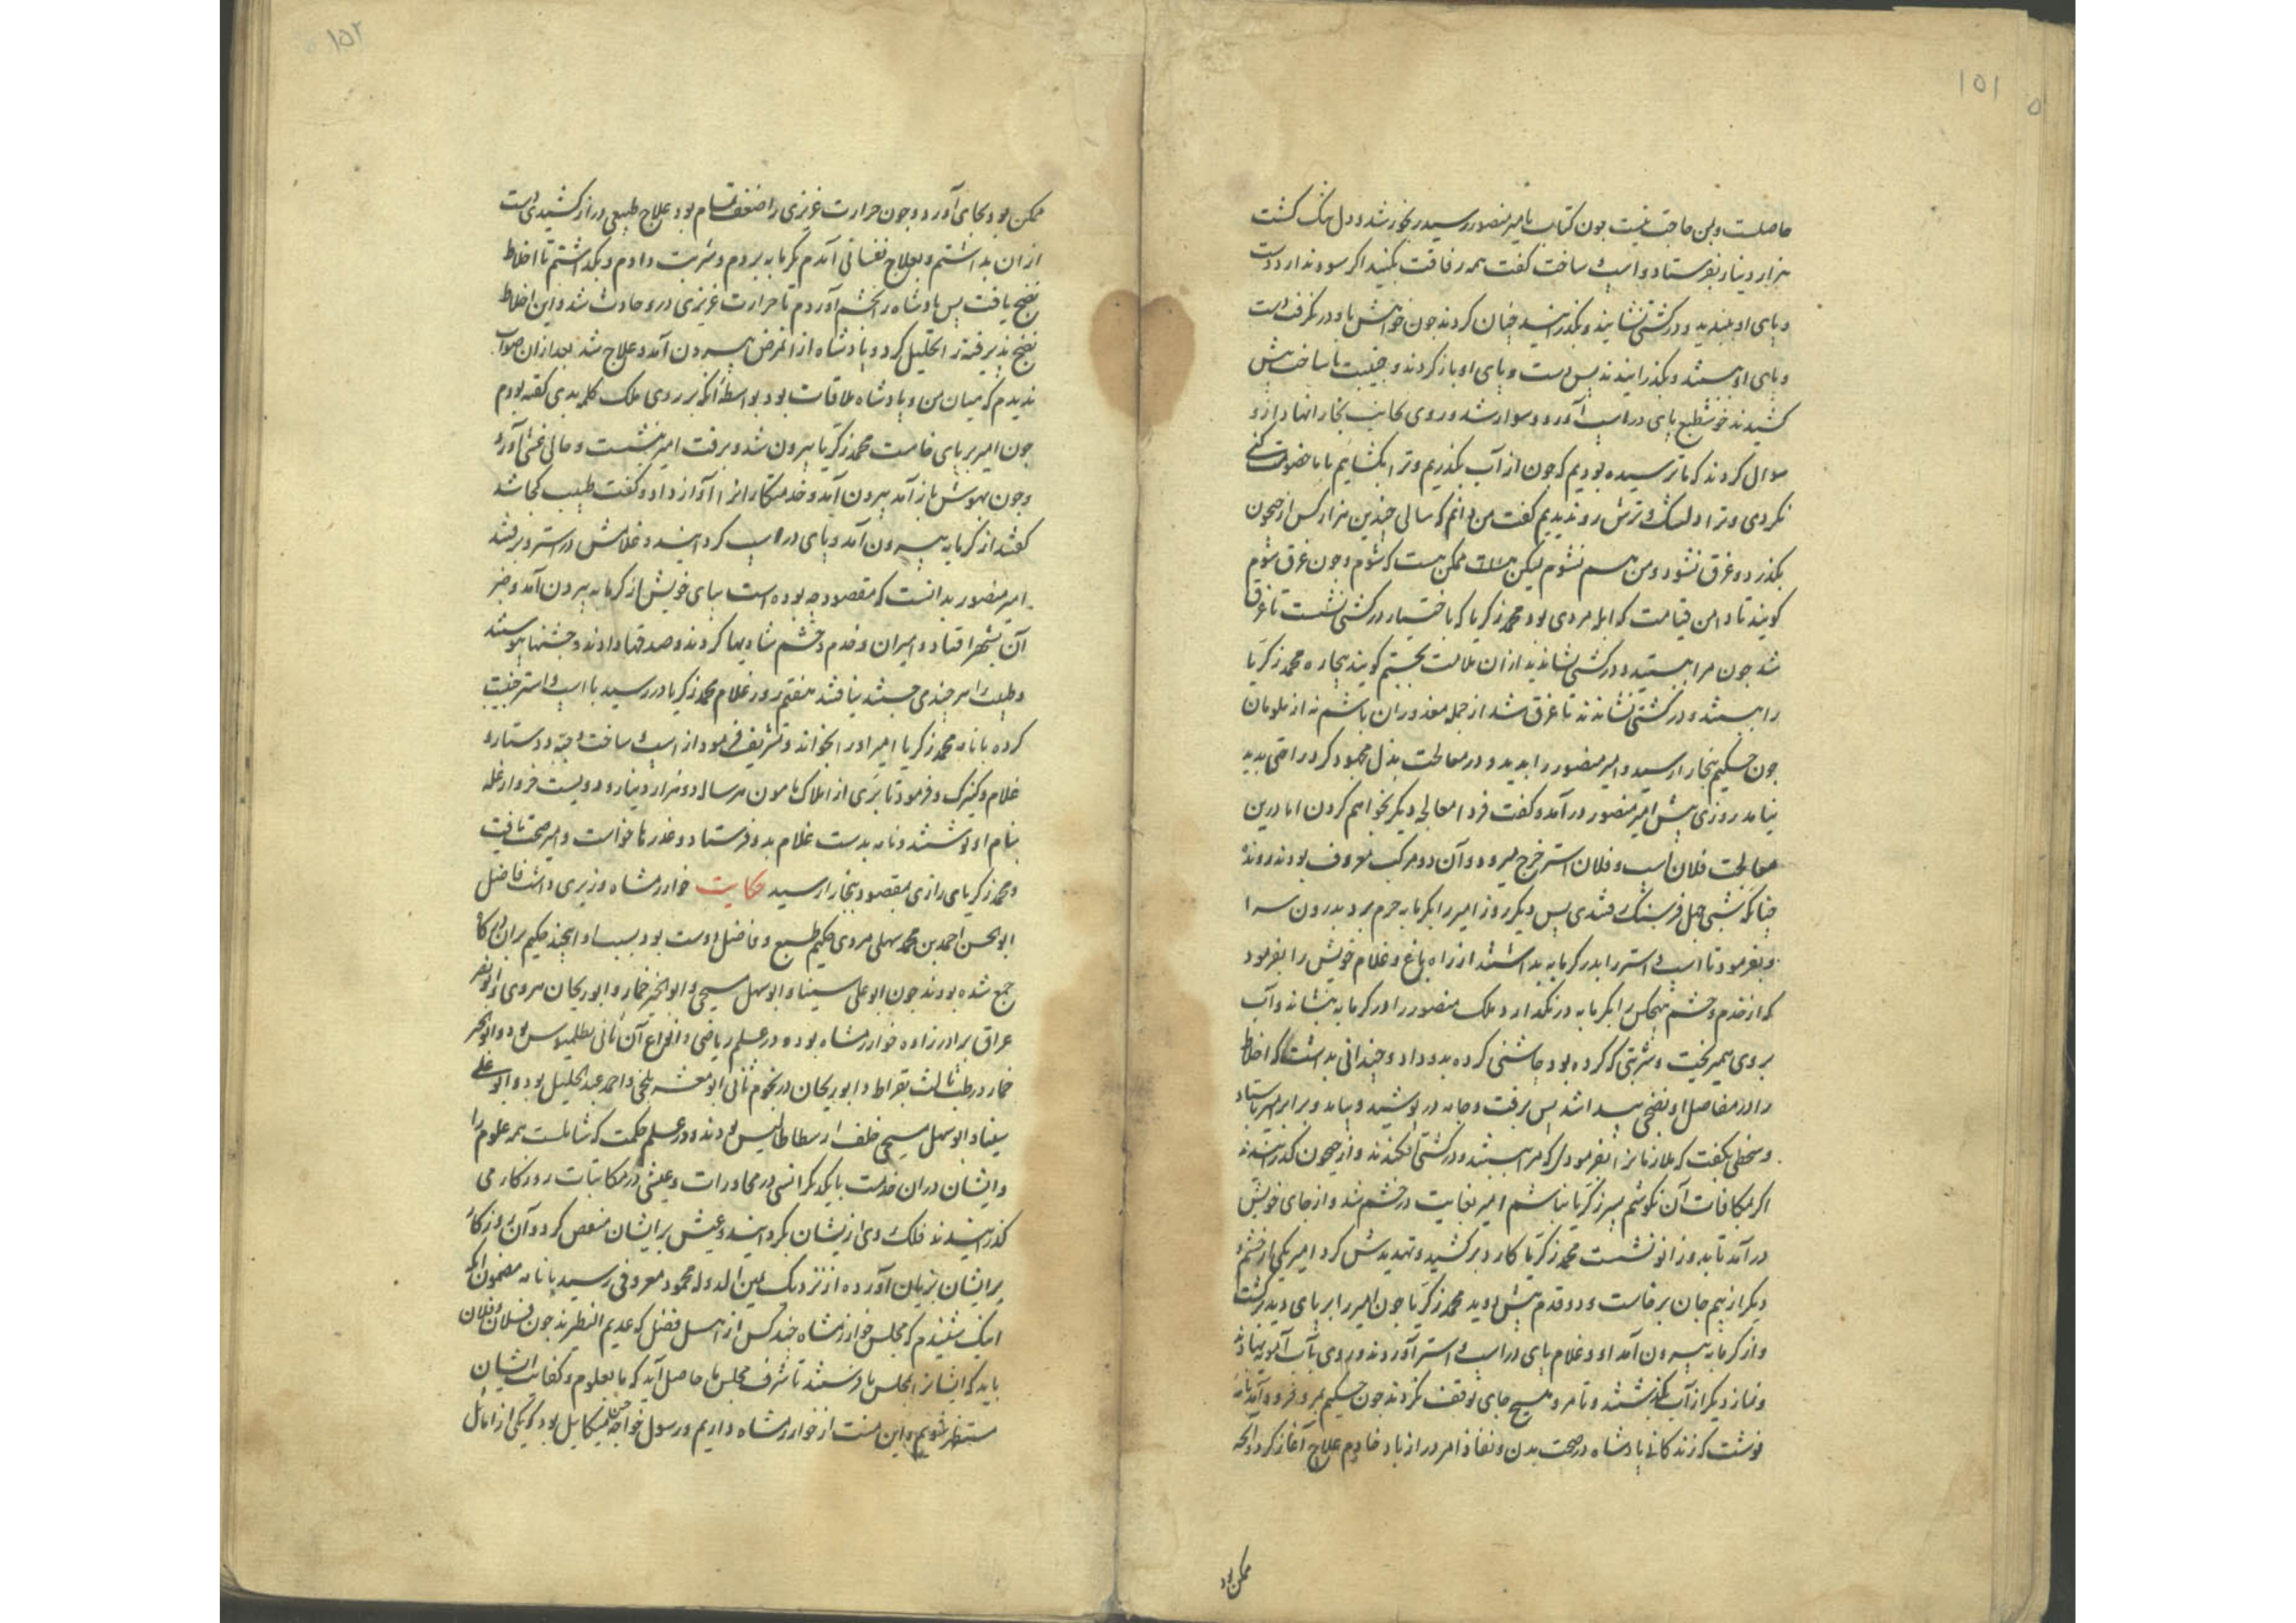 ۱۵۱
حاصلست و بمن حاجت نیست چون کتاب بامیر منصور رسید رنجور شد و دل تنک کشت
هزار دینار بفرستاد و اسپ ساخت کفت همه رفاقت بکنید اکر سود ندارد دست
و پای او ببندید و در کشتی نشانید و بکذرانید چنان کردند چون خواهش باو در نکرفت دست
و پای او ببستند و بکذرانیدند پس دست و پای او باز کردند و جنیبت با ساخت پیش
کشیدند خوش طبع پای در اسپ آورد و سوار شد و روی بجانب بخارا نهاد ازو
سوال کردند که ما ترسیده بودیم که چون از آب بکذریم و ترا بکشائیم با ما خصومت کنی
نکردی و ترا دلتنک و ترش رو ندیدیم کفت من دانم که سالی چندین هزار کس از جیحون
بکذرد و غرق نشود و من هم نشوم لیکن ممکن هست که شوم و چون غرق شوم
کویند تا دامن قیامت که ابله مردی بود محمد زکریا که باختیار در کشتی نشست تا غرق
شد چون مرا ببستید و در کشتی نشاندید از ان ملامت بجستم کویند بیچاره محمد زکریا
را ببستند و در کشتی نشاندند تا غرق شد از جمله معذوران باشم نه از ملومان
چون حکیم ببخارا رسید و امیر منصور را بدید و در معالجت بذل مجهود کرد راحتی پدید
نیامد روزی پیش امیر منصور در آمد و کفت فردا معالجه دیکر بخواهم کردن اما درین
معالجت فلان اسپ و فلان استر خرج میرود و آن دو مرکب معروف بودند در دوندکی
چنانکه شبی چهل فرسنک رفتندی پس دیکر روز امیر را بکرمابه حرم برد بدرون سرا
و بفرمود تا اسپ و استر را بدر کرمابه بداشتند از راه باغ و غلام خویش را بفرمود
که از خدم و حشم هیچکس را بکرمابه در نکذارد و ملک منصور را در کرمابه بنشاند و آب
بروی همیریخت و شربتی که کرده بود چاشنی کرده بدو داد و چندانی بداشت که اخلاط
را در مفاصل او نضجی پیدا شد پس برفت و جامه در پوشید و بیامد و برابر امیر بایستاد
و سخطی بکفت که ملازمانرا بفرمودی که مرا ببستند و در کشتی افکندند و از جیحون کذرانیدند
اکر بمکافات آن نکوشم پسر زکریا نباشم امیر بغایت در خشم شد و از جای خویش
در آمد تا بدو زانو نشست محمد زکریا کارد بر کشید و تهدیدش کرد امیر یکی از خشم و
دیکر از بیم جان برخاست و دو قدم پیش دوید محمد زکریا چون امیر را بر پای دید برکشت
و از کرمابه بیرون آمد او و غلام پای در اسپ و استر آوردند و روی بآب آمویه نهادند
و نماز دیکر از آب بکذشتند و تا مرو هیچ جای توقف نکردند چون حکیم بمرو فرود آمد نامه
نوشت که زندکانی پادشاه در صحت بدن و نفاذ امر دراز باد خادم علاج آغاز کرد و آنچه
ممکن بود
۱۵۲
ممکن بود بجای آورد و چون حرارت غریزی را ضعف تمام بود علاج طبیعی دراز کشیدی دست
از ان بداشتم و بعلاج نفسانی آمدم بکرمابه بردم و شربت دادم و بکذاشتم تا اخلاط
نضج یافت پس پادشاه را بخشم آوردم تا حرارت غریزی درو حادث شد و این اخلاط
نضج پذیرفته را تحلیل کرد و پادشاه از انمرض بیرون آمد و علاج شد بعد از ان صواب
ندیدم که میان من و پادشاه ملاقات بود بواسطه آنکه بر روی ملک کلمه بدی کفته بودم
چون امیر بر پای خاست محمد زکریا بیرون شد و برفت امیر بنشست و حالی غشی آورد
و چون بهوش باز آمد بیرون آمد و خدمتکارانرا آواز داد و کفت طبیب کجا شد
کفتند از کرمابه بیرون آمد و پای در اسپ کردانید و غلامش در استر و برفتند
امیر منصور بدانست که مقصود چه بوده است بپای خویش از کرمابه بیرون آمد و خبر
آن بشهر افتاد و امیران و خدم و حشم شادیها کردند و صدقها دادند و جشنها پیوستند
و طبیب را هر چندی جستند نیافتند هفتم روز غلام محمد زکریا در رسید با اسپ و استر جنیبت
کرده با نامه محمد زکریا امیر او را بخواند و تشریف فرمود از اسپ و ساخت و جبه و دستار و
غلام و کنیزک و فرمود تا بری از املاک مامون هر سال دو هزار دینار و دویست خروار غله
بنام او نوشتند و نامه بدست غلام بدو فرستاد و عذرها خواست و امیر صحت یافت
و محمد زکریای رازی بمقصود ببخارا رسید حکایت خوارزمشاه وزیری داشت فاضل
ابو الحسن احمد بن محمد سهلی مردی حکیم طبع و فاضل دوست بود بسبب او اینچند حکیم بران درکاه
جمع شده بودند چون ابو علی سینا و ابو سهل مسیحی و ابو الخیر خمار و ابو ریحان هروی و ابو نصر
عراق برادر زاده خوارزمشاه بود و در علم ریاضی و انواع آن ثانی بطلمیوس بود و ابو الخیر
خمار در طب ثالث بقراط و ابو ریحان در نجوم ثانی ابو معشر بلخی و احمد عبد الجلیل بود و ابو علی
سینا و ابو سهل مسیحی خلف ارسطاطالیس بودند در علم حکمت که شاملست همه علوم را
و ایشان دران خدمت با یکدیکر انسی در محاورات و عیشی در مکاتبات روزکار می
کذرانیدند فلک روی از یشان بکردانید و عیش بر ایشان منغص کرد و آن روزکار
بر ایشان بزیان آورده از نزدیک یمین الدوله محمود معروفی رسید با نامه مضمون آنکه
اینک شنیدم که مجلس خوارزمشاه چند کس از اهل فضل که عدیم النظیرند چون فلان و فلان
باید که ایشانرا بمجلس ما فرستند تا شرف مجلس ما حاصل آید که ما بعلوم و کفایت ایشان
مستظهر شویم و این منت از خوارزمشاه داریم و رسول خواجه حسین میکائیل بود که یکی از اماثل